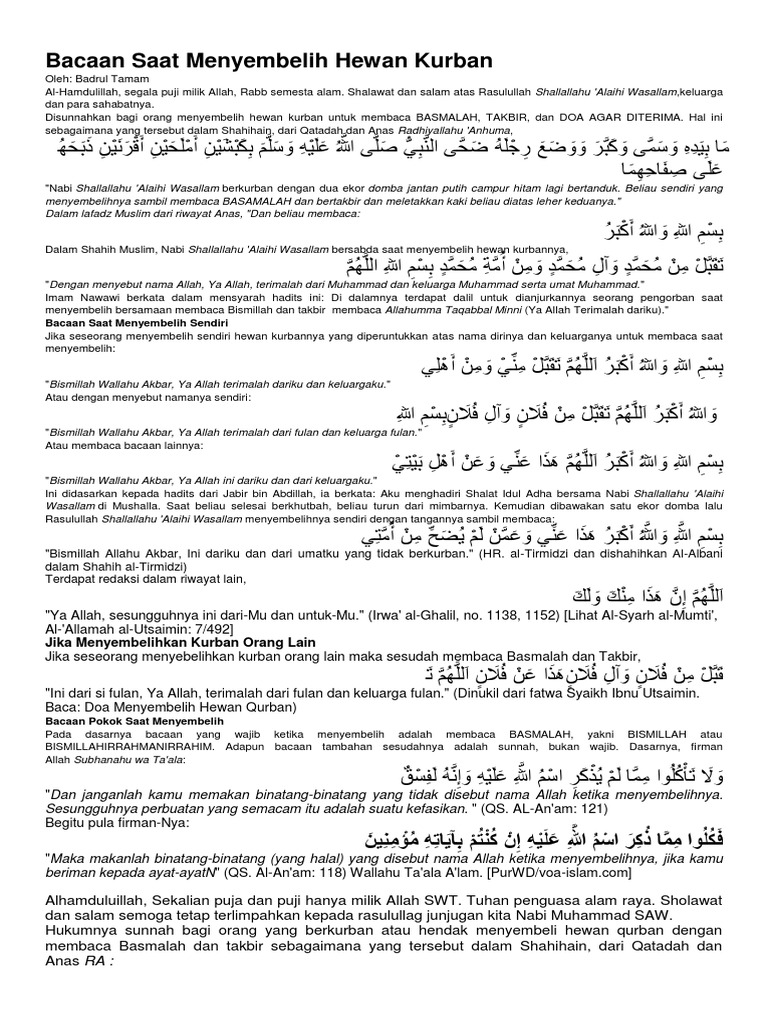 Bacaan Saat Menyembelih Hewan Kurban
Oleh: Badrul Tamam
Al-Hamdulillah, segala puji milik Allah, Rabb semesta alam. Shalawat dan salam atas Rasulullah Shallallahu 'Alaihi Wasallam,keluarga
dan para sahabatnya.
Disunnahkan bagi orang menyembelih hewan kurban untuk membaca BASMALAH, TAKBIR, dan DOA AGAR DITERIMA. Hal ini
sebagaimana yang tersebut dalam Shahihain, dari Qatadah dan Anas Radhiyallahu 'Anhuma,
مَا بِيَدِهِ وَسَمَّى وَكَبَّرَ وَوَضَعَ رِجْلَهُ ضَحَّى النَّبِيُّ صَلَّى اللَّهُ عَلَيْهِ وَسَلَّمَ بِكَبْشَيْنِ أَمْلَحَيْنِ أَقْرَنَيْنِ ذَبَحَهُ
عَلَى صِفَاحِهِمَا
"Nabi Shallallahu 'Alaihi Wasallam berkurban dengan dua ekor domba jantan putih campur hitam lagi bertanduk. Beliau sendiri yang
menyembelihnya sambil membaca BASAMALAH dan bertakbir dan meletakkan kaki beliau diatas leher keduanya."
Dalam lafadz Muslim dari riwayat Anas, "Dan beliau membaca:
بِسْمِ اللهِ وَاللهُ أَكْبَرُ
Dalam Shahih Muslim, Nabi Shallallahu 'Alaihi Wasallam bersabda saat menyembelih hewan kurbannya,
تَقَبَّلْ مِنْ مُحَمَّدٍ وَآلِ مُحَمَّدٍ وَمِنْ أُمَّةِ مُحَمَّدٍ بِسْمِ اللهِ اللَّهُمَّ
"Dengan menyebut nama Allah, Ya Allah, terimalah dari Muhammad dan keluarga Muhammad serta umat Muhammad."
Imam Nawawi berkata dalam mensyarah hadits ini: Di dalamnya terdapat dalil untuk dianjurkannya seorang pengorban saat
menyembelih bersamaan membaca Bismillah dan takbir membaca Allahumma Taqabbal Minni (Ya Allah Terimalah dariku)."
Bacaan Saat Menyembelih Sendiri
Jika seseorang menyembelih sendiri hewan kurbannya yang diperuntukkan atas nama dirinya dan keluarganya untuk membaca saat
menyembelih:
بِسْمِ اللهِ وَاللهُ أَكْبَرُ اَللَّهُمَّ تَقَبَّلْ مِنِّيْ وَمِنْ أَهْلِي
"Bismillah Wallahu Akbar, Ya Allah terimalah dariku dan keluargaku."
Atau dengan menyebut namanya sendiri:
وَاللهُ أَكْبَرُ اَللَّهُمَّ تَقَبَّلْ مِنْ فُلَانٍ وَآلِ فُلَانٍبِسْمِ اللهِ
"Bismillah Wallahu Akbar, Ya Allah terimalah dari fulan dan keluarga fulan."
Atau membaca bacaan lainnya:
بِسْمِ اللهِ وَاللهُ أَكْبَرُ اَللَّهُمَّ هَذَا عَنِّي وَعَنْ أَهْلِ بَيْتِيْ
"Bismillah Wallahu Akbar, Ya Allah ini dariku dan dari keluargaku."
Ini didasarkan kepada hadits dari Jabir bin Abdillah, ia berkata: Aku menghadiri Shalat Idul Adha bersama Nabi Shallallahu 'Alaihi
Wasallam di Mushalla. Saat beliau selesai berkhutbah, beliau turun dari mimbarnya. Kemudian dibawakan satu ekor domba lalu
Rasulullah Shallallahu 'Alaihi Wasallam menyembelihnya sendiri dengan tangannya sambil membaca:
بِسْمِ اللَّهِ وَاللَّهُ أَكْبَرُ هَذَا عَنِّي وَعَمَّنْ لَمْ يُضَحِّ مِنْ أُمَّتِي
"Bismillah Allahu Akbar, Ini dariku dan dari umatku yang tidak berkurban." (HR. al-Tirmidzi dan dishahihkan Al-Albani
dalam Shahih al-Tirmidzi)
Terdapat redaksi dalam riwayat lain,
اَللَّهُمَّ إِنَّ هَذَا مِنْكَ وَلَكَ
"Ya Allah, sesungguhnya ini dari-Mu dan untuk-Mu." (Irwa' al-Ghalil, no. 1138, 1152) [Lihat Al-Syarh al-Mumti',
Al-'Allamah al-Utsaimin: 7/492]
Jika Menyembelihkan Kurban Orang Lain
Jika seseorang menyebelihkan kurban orang lain maka sesudah membaca Basmalah dan Takbir,
قَبَّلْ مِنْ فُلَانٍ وَآلِ فُلَانٍهَذَا عَنْ فُلَانٍ اَللَّهُمَّ تَ
"Ini dari si fulan, Ya Allah, terimalah dari fulan dan keluarga fulan." (Dinukil dari fatwa Syaikh Ibnu Utsaimin.
Baca: Doa Menyembelih Hewan Qurban)
Bacaan Pokok Saat Menyembelih
Pada dasarnya bacaan yang wajib ketika menyembelih adalah membaca BASMALAH, yakni BISMILLAH atau
BISMILLAHIRRAHMANIRRAHIM. Adapun bacaan tambahan sesudahnya adalah sunnah, bukan wajib. Dasarnya, firman
Allah Subhanahu wa Ta'ala:
وَلَا تَأْكُلُوا مِمَّا لَمْ يُذْكَرِ اسْمُ اللَّهِ عَلَيْهِ وَإِنَّهُ لَفِسْقٌ
"Dan janganlah kamu memakan binatang-binatang yang tidak disebut nama Allah ketika menyembelihnya.
Sesungguhnya perbuatan yang semacam itu adalah suatu kefasikan. " (QS. AL-An'am: 121)
Begitu pula firman-Nya:
فَكُلُوا مِمَّا ذُكِرَ اسْمُ اللَّهِ عَلَيْهِ إِنْ كُنْتُمْ بِآَيَاتِهِ مُؤْمِنِينَ
"Maka makanlah binatang-binatang (yang halal) yang disebut nama Allah ketika menyembelihnya, jika kamu
beriman kepada ayat-ayatN" (QS. Al-An'am: 118) Wallahu Ta'ala A'lam. [PurWD/voa-islam.com]
Alhamduluillah, Sekalian puja dan puji hanya milik Allah SWT. Tuhan penguasa alam raya. Sholawat
dan salam semoga tetap terlimpahkan kepada rasulullag junjugan kita Nabi Muhammad SAW.
Hukumnya sunnah bagi orang yang berkurban atau hendak menyembeli hewan qurban dengan
membaca Basmalah dan takbir sebagaimana yang tersebut dalam Shahihain, dari Qatadah dan
Anas RA :